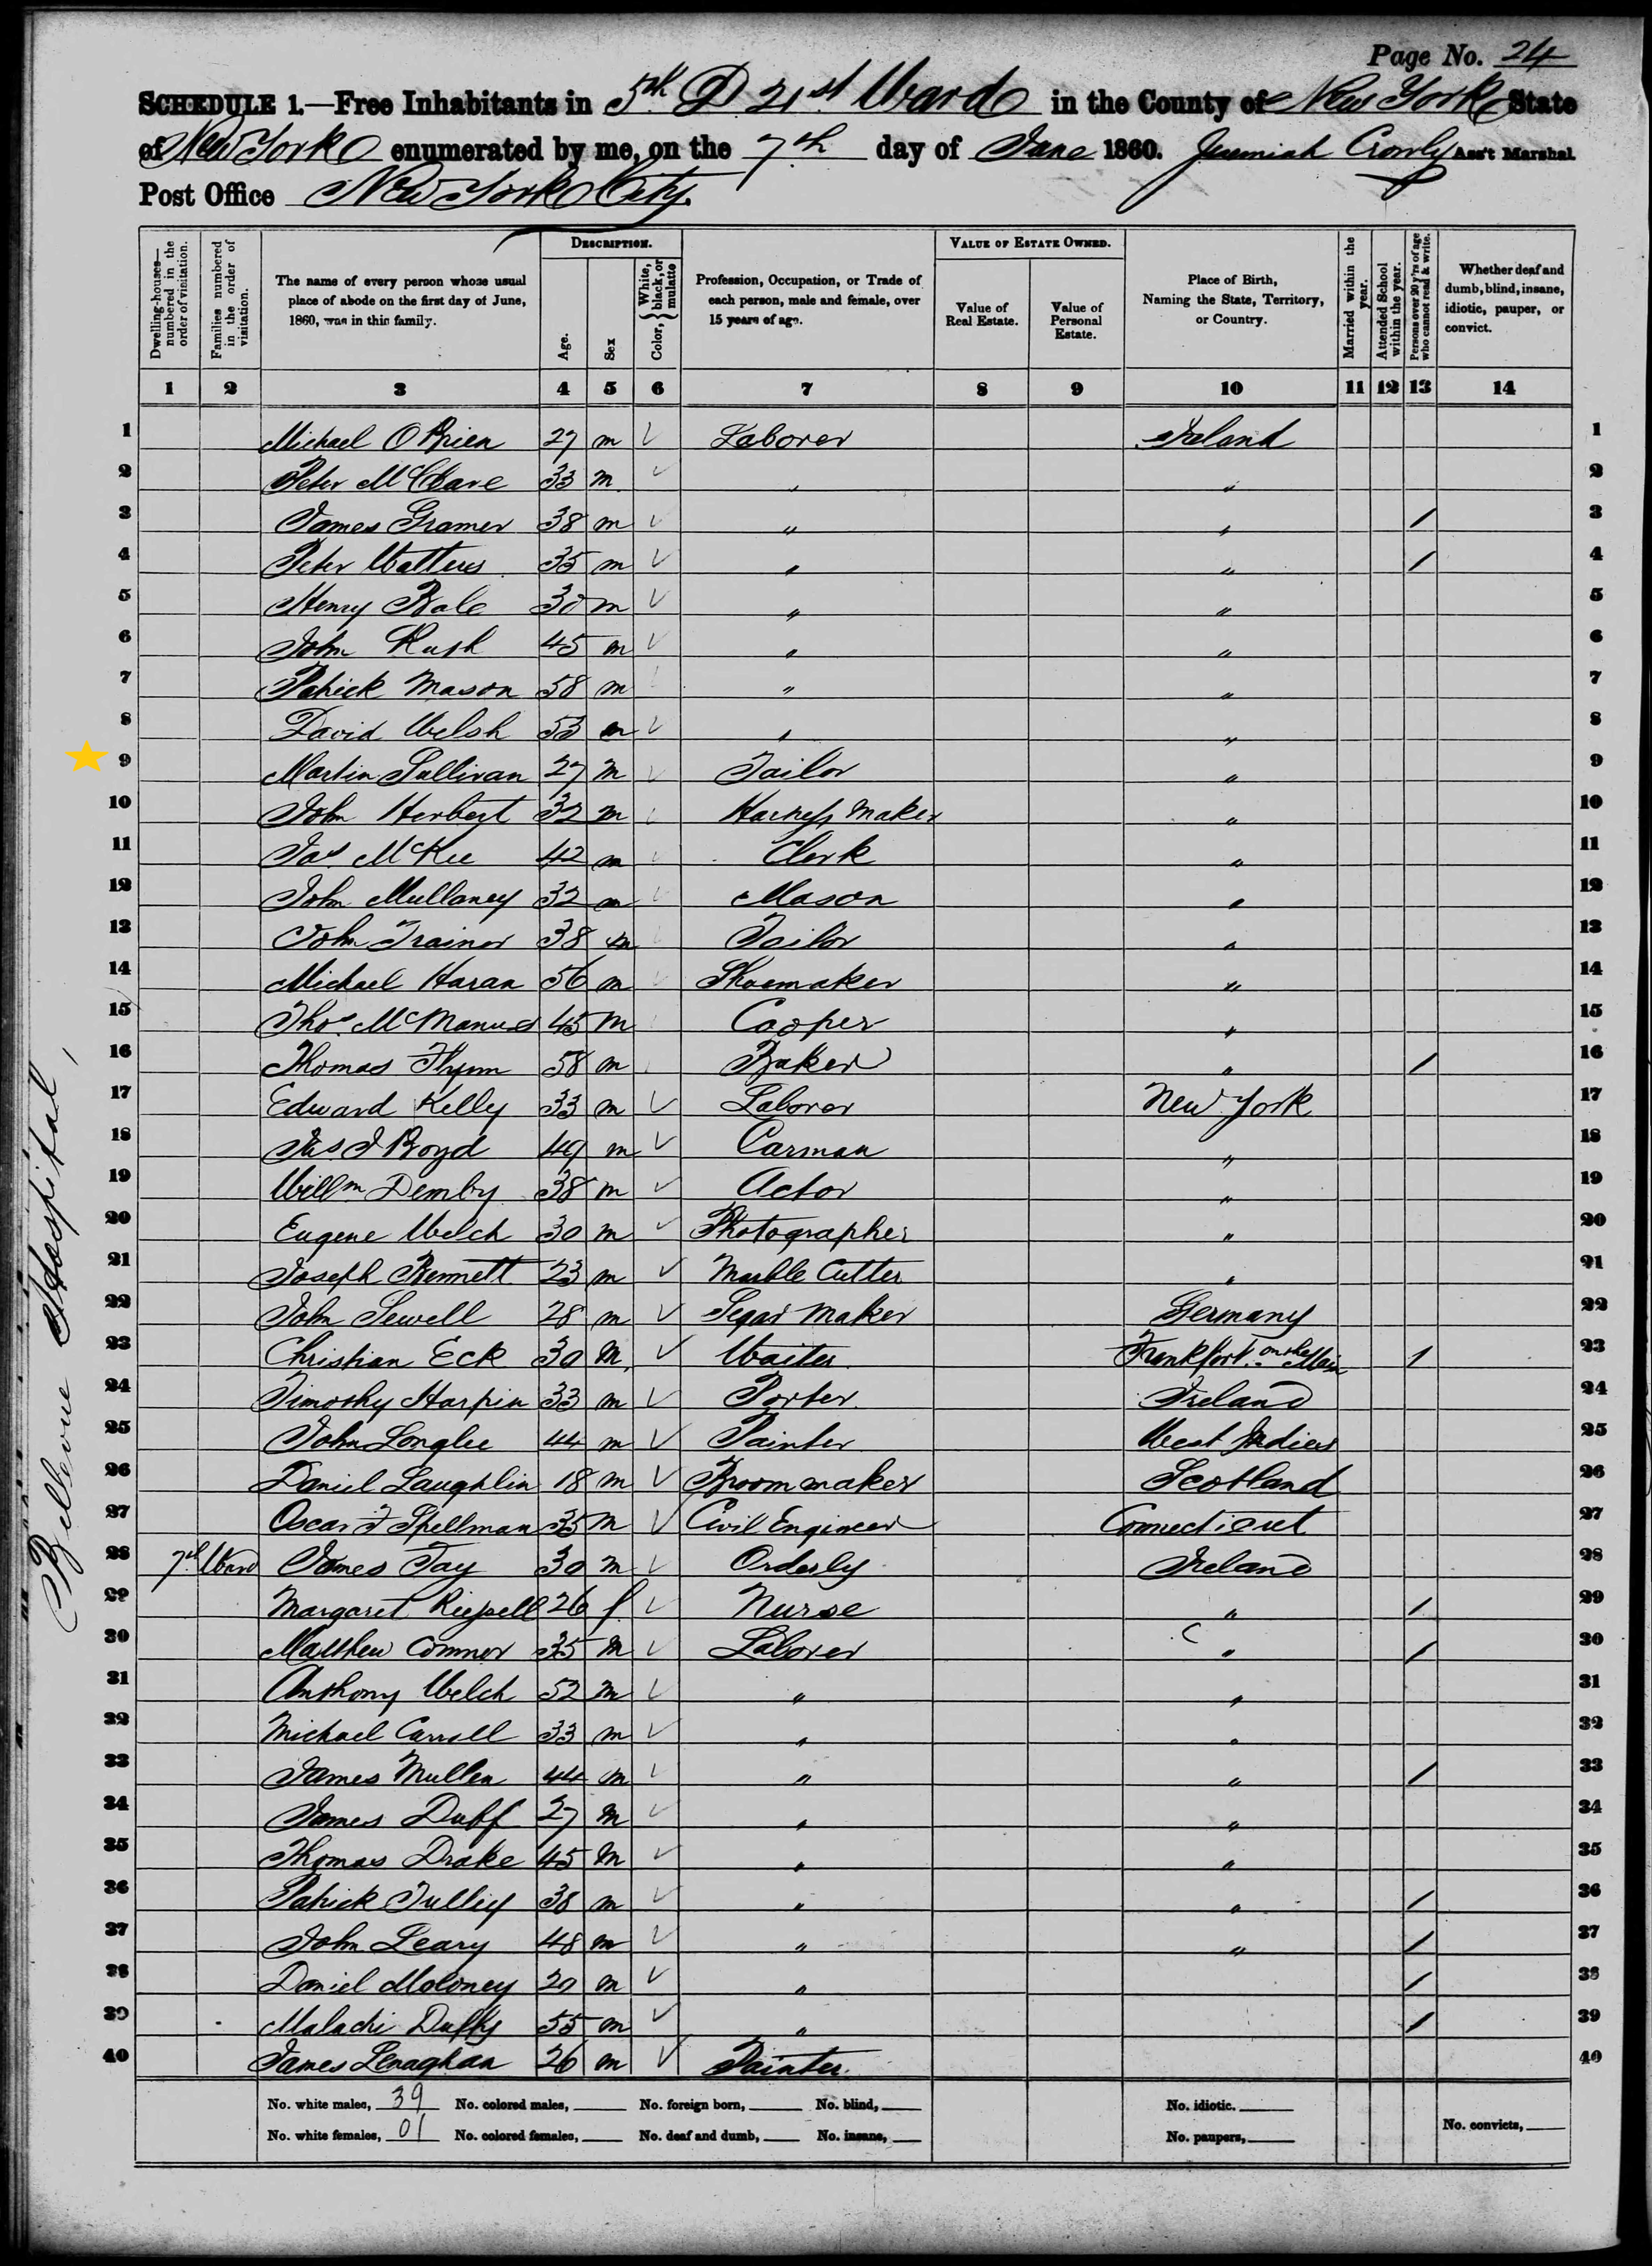 Page No. 24
SCHEDULE 1.—Free Inhabitants in 5th D 21st Ward in the County of New York State
of New York enumerated by me, on the 7th day of June 1860. Jeremiah Crowly Ass't Marshal
Post Office New York City.
Dwelling-houses—numbered in the order of visitation.
Families numbered in the order of visitation.
The name of every person whose usual place of abode on the first day of June, 1860, was in this family.
DESCRIPTION.
Age.
Sex
Color, { White, black, or mulatto
Profession, Occupation, or Trade of each person, male and female, over 15 years of age.
VALUE OF ESTATE OWNED.
Value of Real Estate.
Value of Personal Estate.
Place of Birth, Naming the State, Territory, or Country.
Married within the year.
Attended School within the year.
Persons over 20 y'rs of age who cannot read & write.
Whether deaf and dumb, blind, insane, idiotic, pauper, or convict.
1 2 3 4 5 6 7 8 9 10 11 12 13 14
1 Michael O Brien 27 m Laborer Ireland 1
2 Peter McClare 33 m " " 2
3 James Gramer 38 m " " / 3
4 Peter Watters 35 m " " / 4
5 Henry Bale 30 m " " 5
6 John Rush 45 m " " 6
7 Patrick Mason 58 m " " 7
8 David Welsh 53 m " " 8
9 Martin Sullivan 27 m Tailor " 9
10 John Herbert 32 m Harness Maker " 10
11 Jas McKee 42 m Clerk " 11
12 John Mullaney 32 m Mason " 12
13 John Trainor 38 m Tailor " 13
14 Michael Haran 56 m Shoemaker " 14
15 Thos McManus 45 m Cooper " 15
16 Thomas Flynn 58 m Baker " / 16
17 Edward Kelly 33 m Laborer New York 17
18 Jas J Boyd 49 m Carman " 18
19 Willm Demby 38 m Actor " 19
20 Eugene Welch 30 m Photographer " 20
21 Joseph Bennett 23 m Marble Cutter " 21
22 John Sewell 28 m Segar Maker Germany 22
23 Christian Eck 30 M Waiter Frankfort on the Main / 23
24 Timothy Harpin 33 m Porter Ireland 24
25 John Longlee 44 m Painter West Indies 25
26 Daniel Laughlin 18 m Broom maker Scotland 26
27 Oscar F Spellman 35 m Civil Engineer Connecticut 27
28 7th Ward James Fay 30 m Orderly Ireland 28
29 Margaret 26 f Nurse " / 29
30 Matthew Connor 35 m Laborer " / 30
31 Anthony Welch 52 m " " 31
32 Michael Carroll 33 m " " 32
33 James Mullen 44 m " " / 33
34 James Duff 27 m " " 34
35 Thomas Drake 45 m " " 35
36 Patrick Tulley 38 m " " / 36
37 John Leary 48 m " " / 37
38 Daniel Moloney 20 m " / 38
39 Malachi Duffy 55 m " / 39
40 James Lenaghan 26 m Painter 40
Bellevue Hospital
No. white males, 39 No. colored males, No. foreign born, No. blind, No. idiotic.
No. white females, 01 No. colored females, No. deaf and dumb, No. insane, No. paupers, No. convicts,